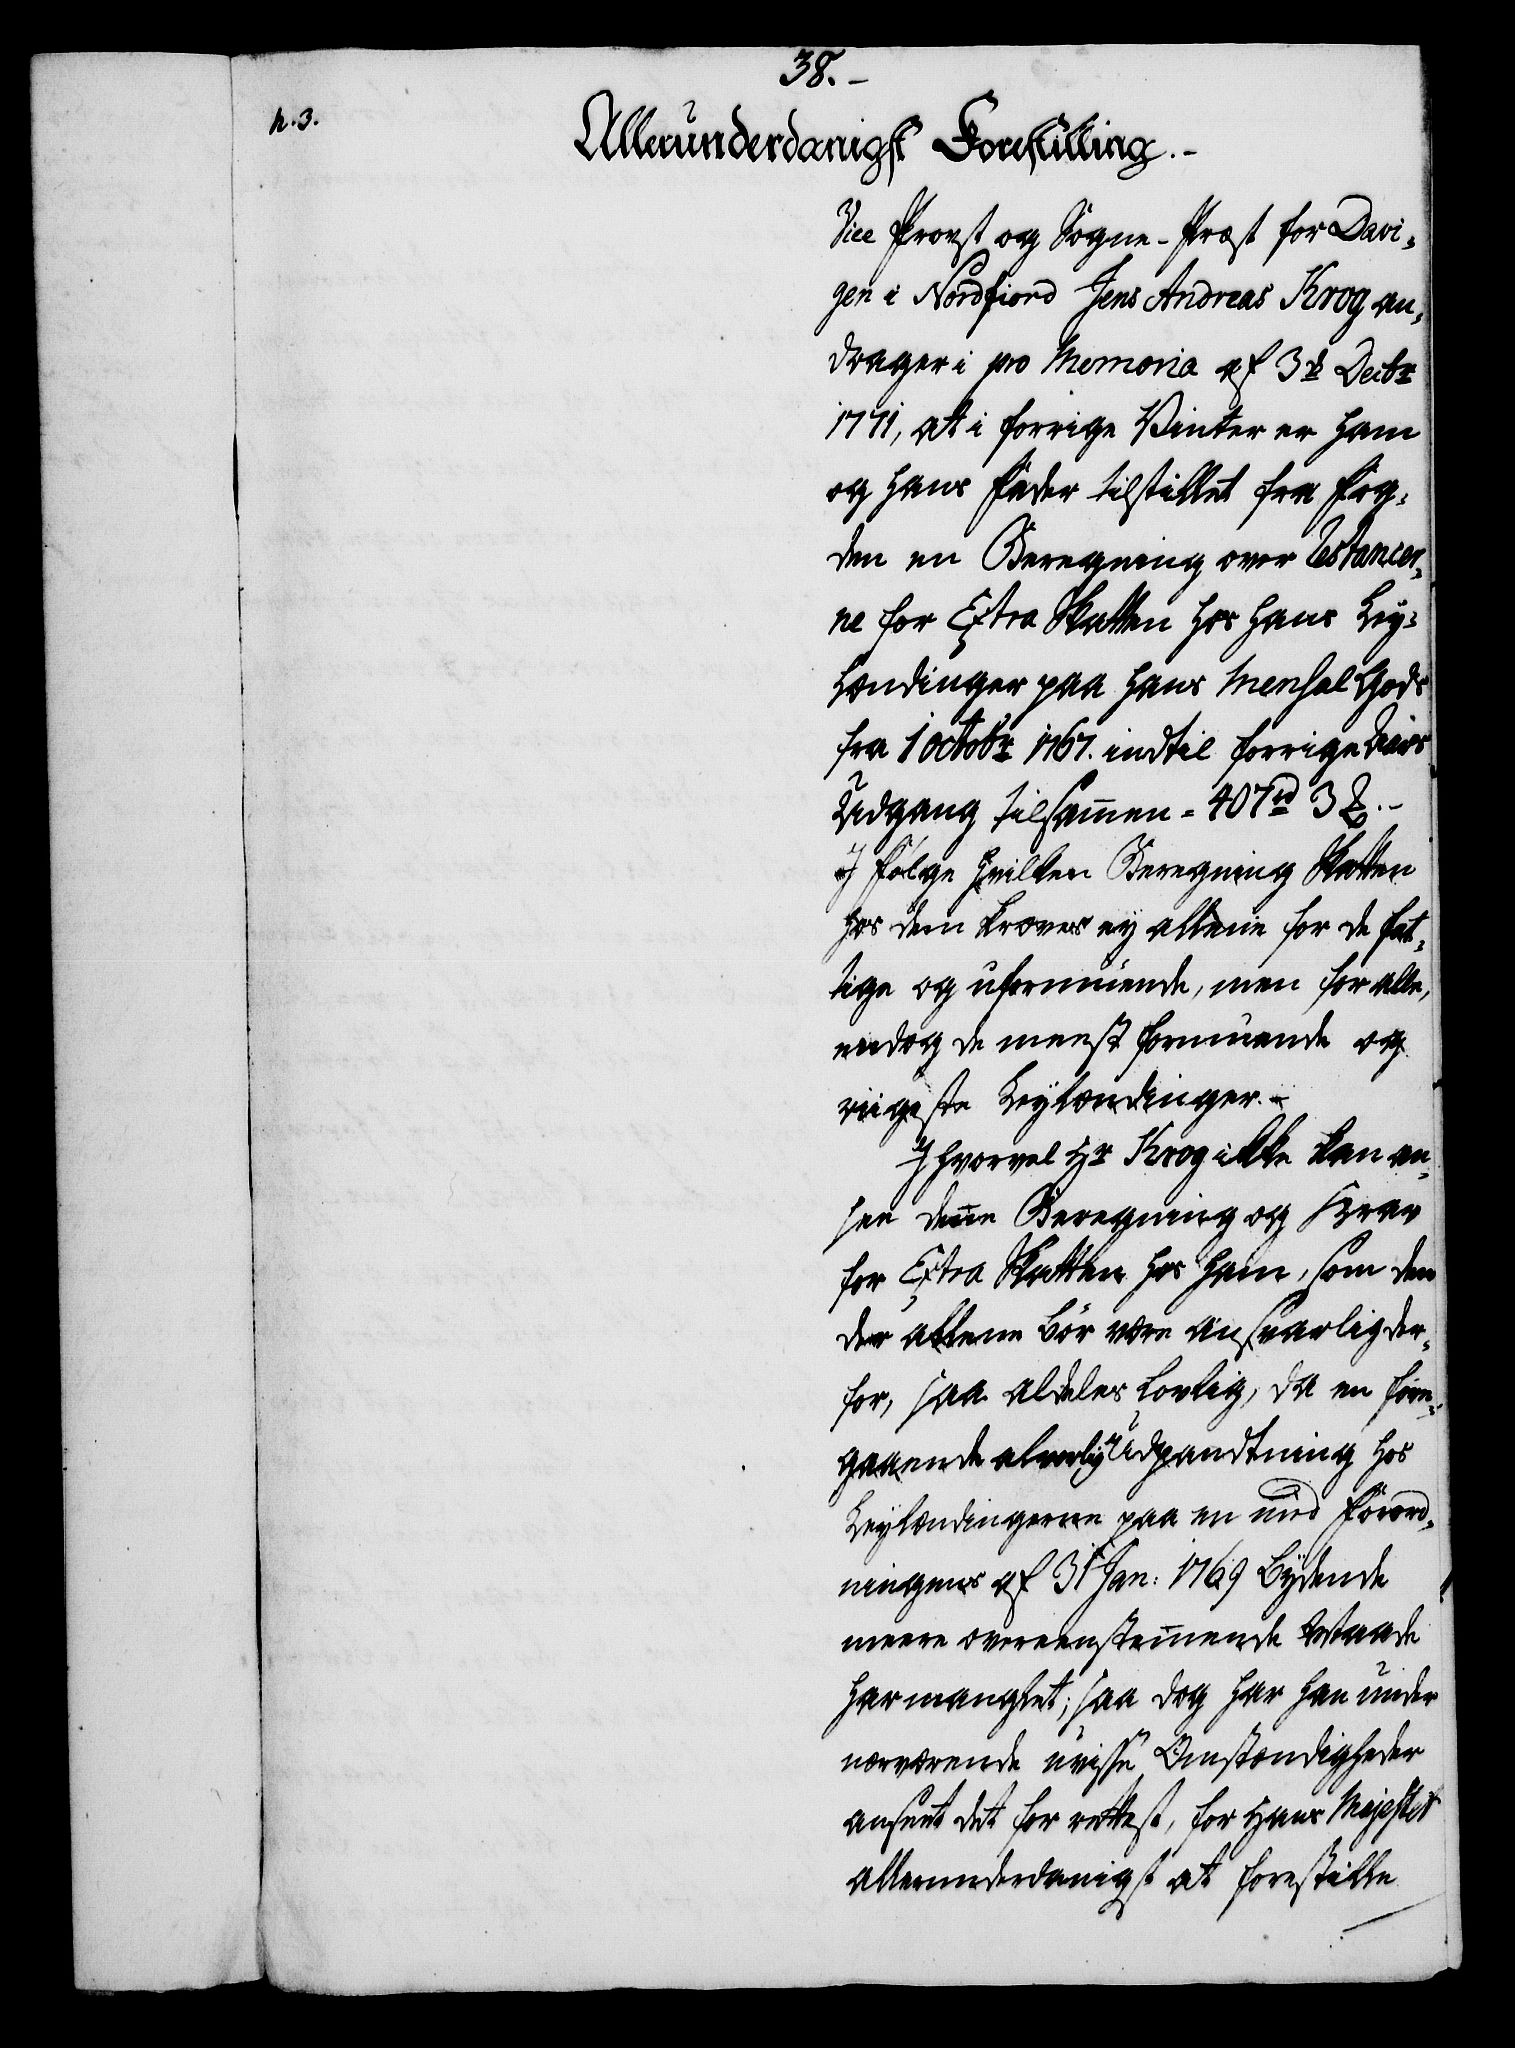 38.-
n. 3.
Allerunderdanigst Forestilling.-
Vice Provst og Sogne-Præst for Davi-
gen i Nordfiord Jens Andreas Krog an-
drager i pro Memoria af 3d Decbr
1771, at i forrige Vinter er ham
og hans Fader tilstillet fra Fog-
den en Beregning over Restancer-
ne for Extra Skatten hos hans Ley-
lændinger paa hans Mensal Gods
fra 1 octobr 1767. indtil forrige Aars
Udgang tilsamen = 407rd 3 ß.-
I følge hvilken Beregning Skatten
hos dem kræves ey allene for de fat-
tige og uformuende, men for alle,
endog de meest formuende og
rigeste Leylændinger.-
Ihvorvel Hr Krog ikke kan an-
see dene Beregning og Krav
for Extra Skatten hos ham, som den
der allene bør være ansvarlig der-
for, saa aldeles lovlig, da en fore-
gaaende alvorlig Udpandtning hos
Leylændingerne paa en med Forord-
ningens af 31 Jan: 1769 Bydende
meere overeenstemende Maade
har manglet; saa dog har han under
nærværende uvisse Omstændigheder
anseet det for rettest, for Hans Majestet
allerunderdanigst at forestille